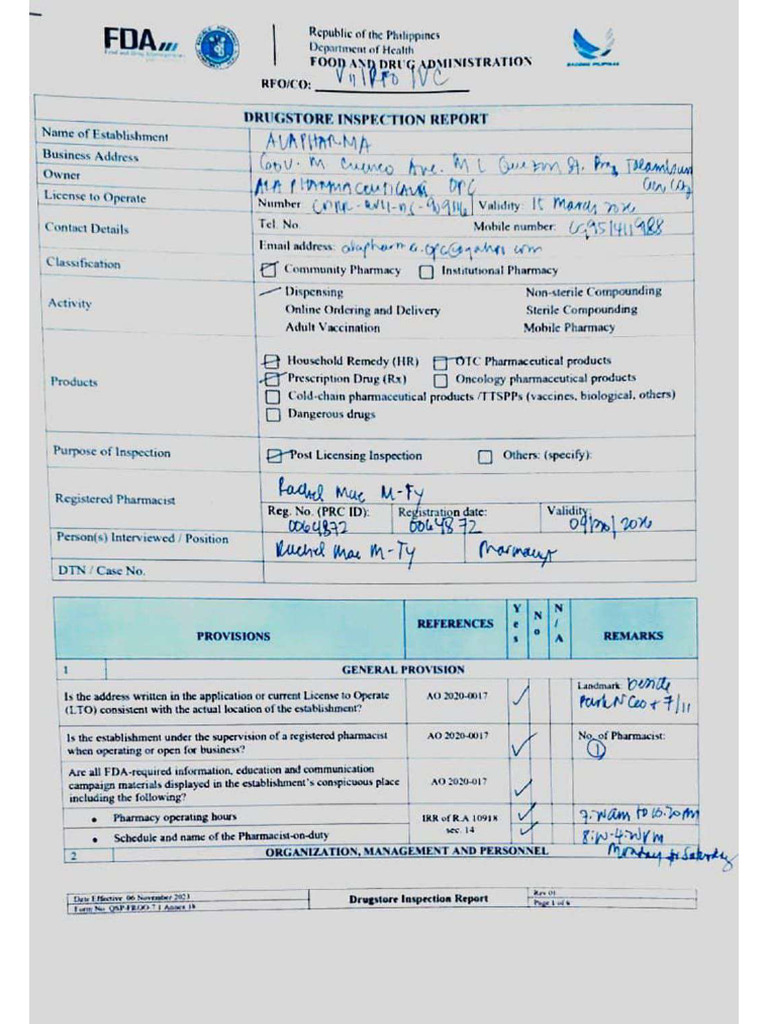 FDA
Republic of the Philippines
Department of Health
FOOD AND DRUG ADMINISTRATION
BAGONG PILIPINAS
RFO/CO: VII/RFO IVC
DRUGSTORE INSPECTION REPORT
Name of Establishment ALAPHARMA
Business Address Gov. M Cuenco Ave. M L Quezon St. Brgy Talamban
Owner ALA PHARMACEUTICALS OPC
License to Operate Number Validity: 15 March 2026
Contact Details Tel. No. Mobile number:
Email address: alapharma.opc@yahoo.com
Classification Community Pharmacy Institutional Pharmacy
Activity
Dispensing Non-sterile Compounding
Online Ordering and Delivery Sterile Compounding
Adult Vaccination Mobile Pharmacy
Products
Household Remedy (HR) OTC Pharmaceutical products
Prescription Drug (Rx) Oncology pharmaceutical products
Cold-chain pharmaceutical products /TTSPPs (vaccines, biological, others)
Dangerous drugs
Purpose of Inspection Post Licensing Inspection Others: (specify):
Registered Pharmacist Rachel Mae M-Ty
Reg. No. (PRC ID): Registration date: Validity:
0064872 0064872 09/20/2026
Person(s) Interviewed / Position Rachel Mae M-Ty Pharmacist
DTN / Case No.
PROVISIONS REFERENCES Yes No N/A REMARKS
1 GENERAL PROVISION
Is the address written in the application or current License to Operate (LTO) consistent with the actual location of the establishment? AO 2020-0017 Landmark: beside
Park N Geo + 7/11
Is the establishment under the supervision of a registered pharmacist when operating or open for business? AO 2020-0017 No. of Pharmacist:
1
Are all FDA-required information, education and communication campaign materials displayed in the establishment's conspicuous place including the following? AO 2020-017
• Pharmacy operating hours IRR of R.A 10918 sec. 14
• Schedule and name of the Pharmacist-on-duty
Monday to Saturday
2 ORGANIZATION, MANAGEMENT AND PERSONNEL
Date Effective 06 November 2023
Drugstore Inspection Report
Rev 01
Page 1 of 6